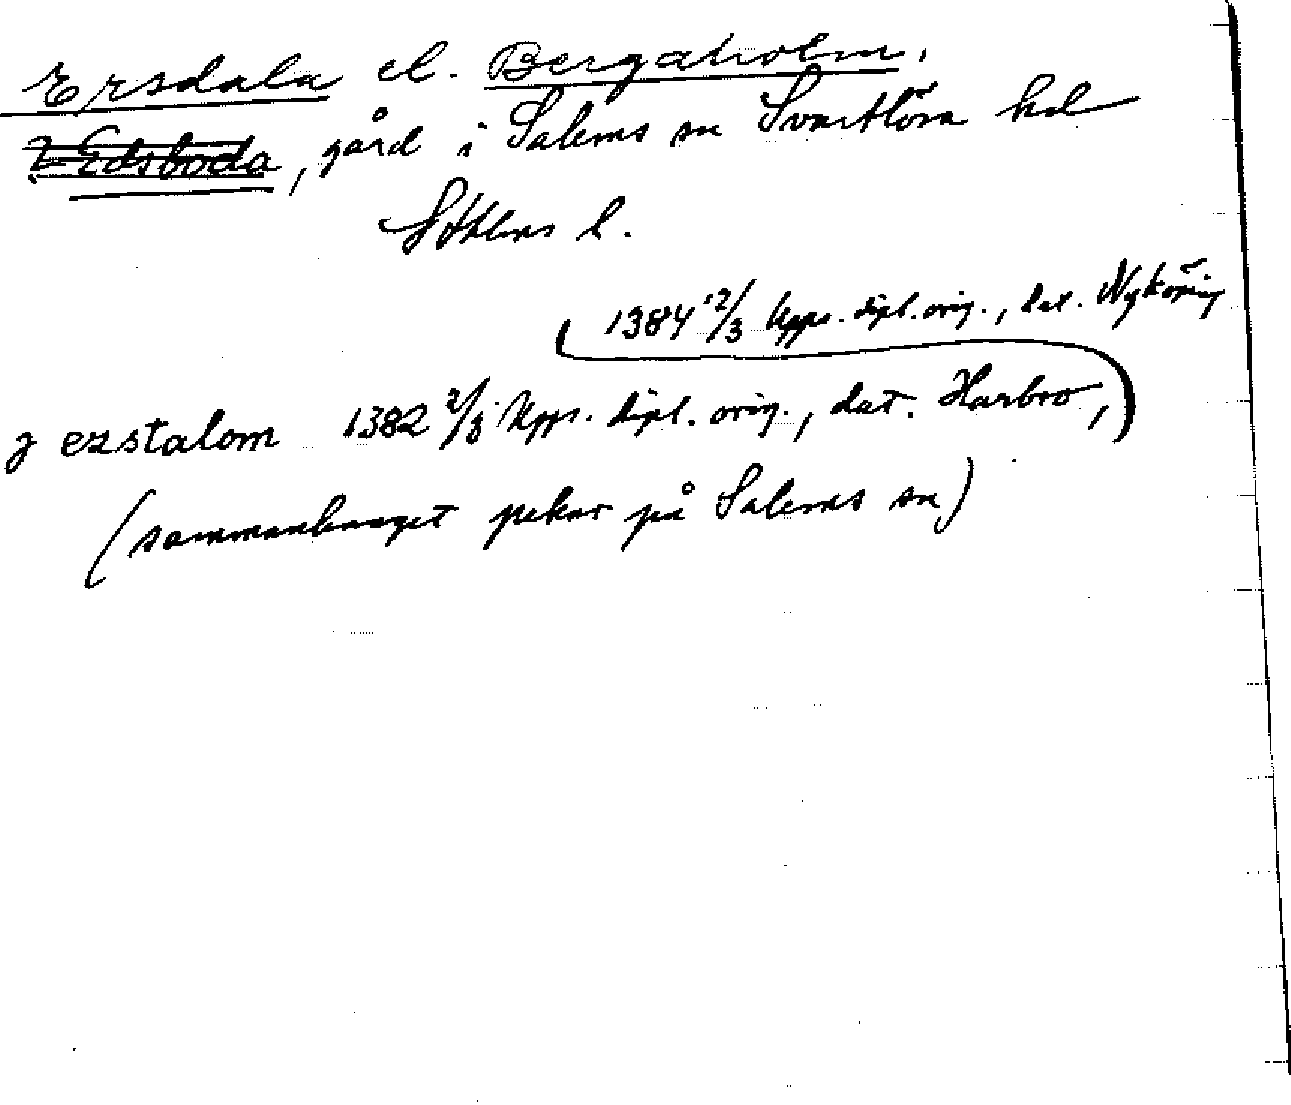 Ersdala el. Bergaholm.
? Edsboda, gård i Salems sn Svartlösa hd
Sthlms l.
1384 12/3 Upps. dipl. orig., dat. Nyköping
j erstalom 1382 2/3 Upps. dipl. orig., dat. Harbro,
(sammanhanget pekar på Salems sn)